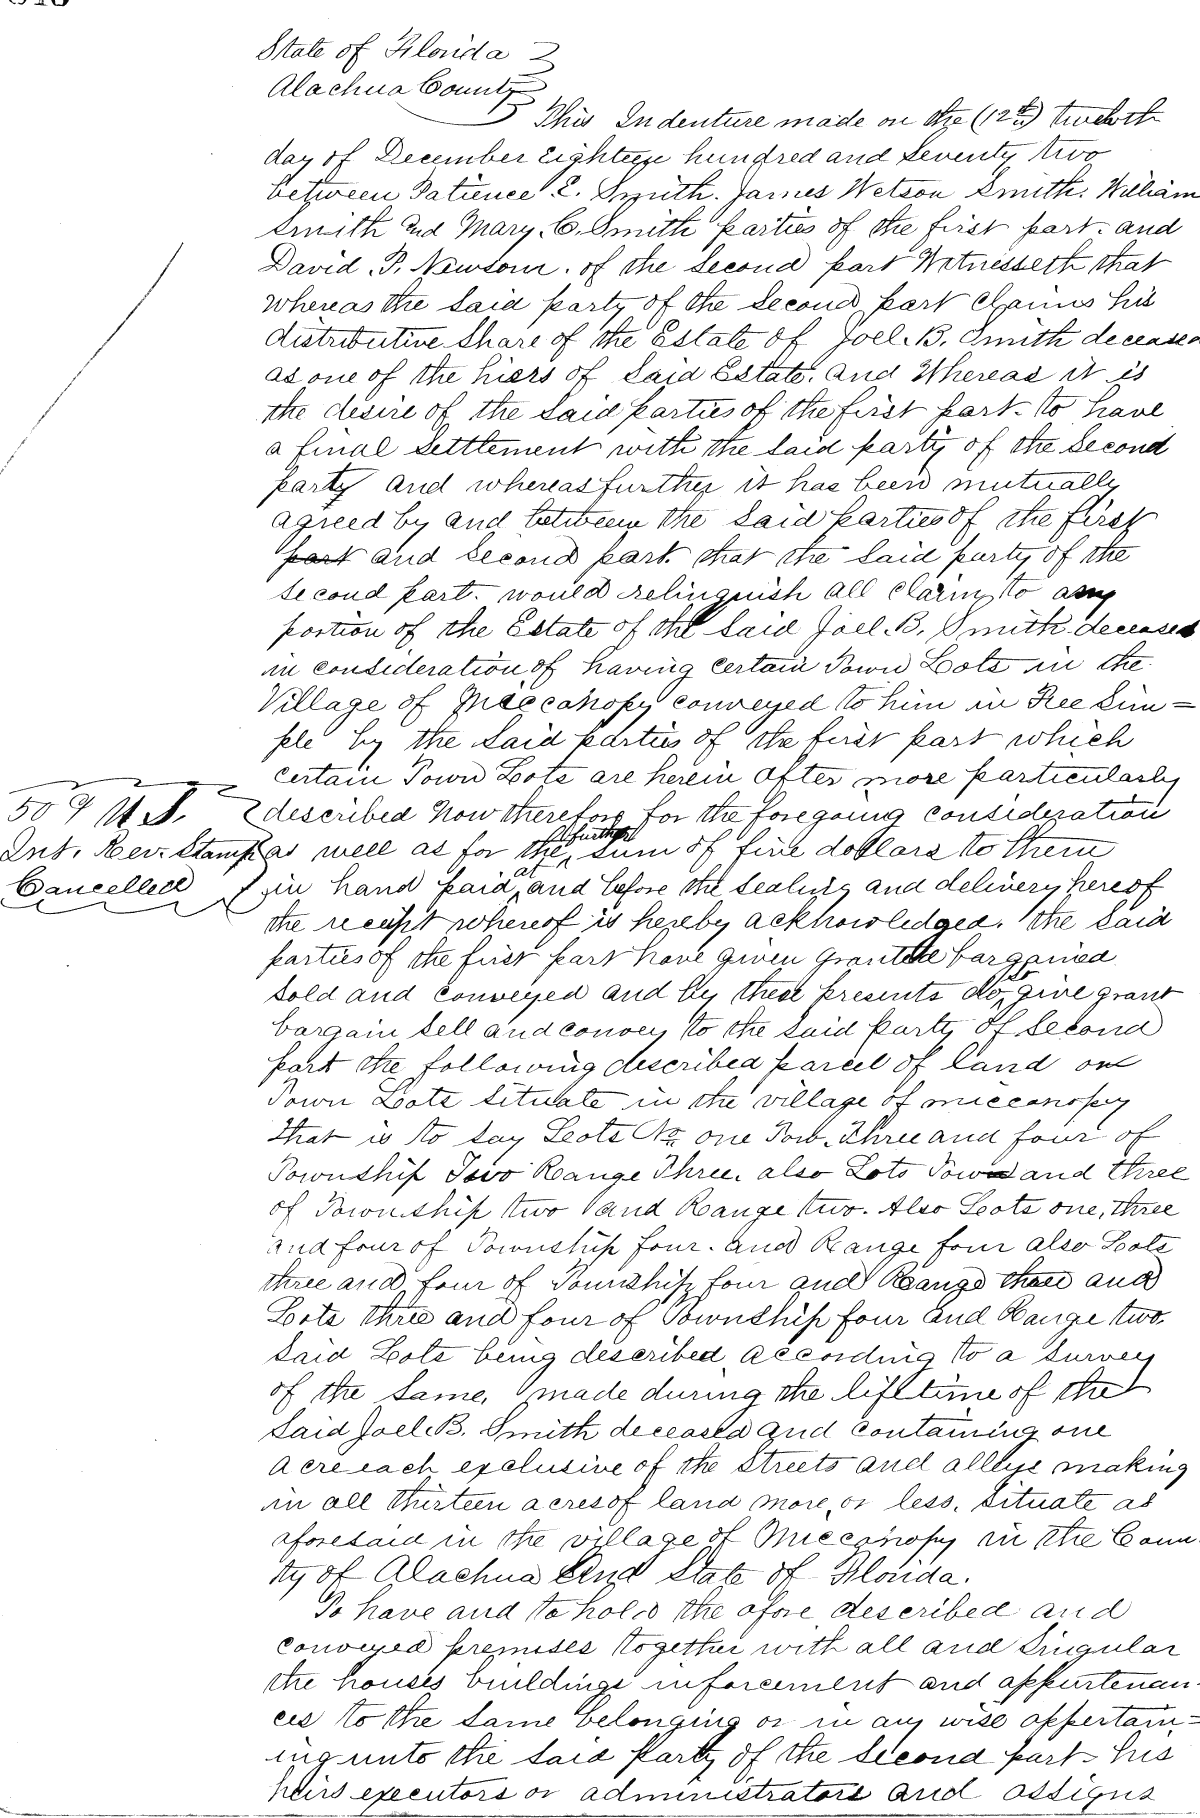 State of Florida
Alachua County
This Indenture made on the (12th) twelvth
day of December Eighteen hundred and Seventy two
between Patience E. Smith. James Wetson Smith. William
Smith and Mary. C. Smith parties of the first part. and
David. P. Newsom. of the Second part Witnesseth that
whereas the Said party of the Second part claims his
distributive Share of the Estate of Joel. B. Smith deceased
as one of the hiers of Said Estate. and Whereas it is
the desire of the Said parties of the first part. to have
a final Settlement with the Said party of the Second
party and whereas further it has been mutually
agreed by and between the Said parties of the first
part and Second part. that the Said party of the
Second part. would relinquish all claim to any
portion of the Estate of the Said Joel. B. Smith deceased
in consideration of having certain Town Lots in the
Village of Miccanopy conveyed to him in Fee Sim=
ple by the Said parties of the first part which
certain Town Lots are herein after more particularly
described Now therefore for the foregoing consideration
50 ¢ U.S.
Int. Rev. Stamp
Cancelled
as well as for the further Sum of five dollars to them
in hand paid at and before the Sealing and delivery hereof
the receipt whereof is hereby acknowledged. the Said
parties of the first part have given granted bargained
Sold and conveyed and by these presents do so give grant
bargain Sell and convey to the Said party of Second
part the following described parcel of land or
Town Lots Situate in the village of Miccanopy
that is to Say Lots No one Tow. Three and four of
Township Two Range Three. also Lots Tow and three
of Township two and Range two. Also Lots one, three
and four of Township four. and Range four also Lots
three and four of Township four and Range three and
Lots three and four of Township four and Range two.
Said Lots being described according to a Survey
of the Same, made during the lifetime of the
Said Joel. B. Smith deceased and containing one
acre each exclusive of the Streets and alleys making
in all thirteen acres of land more or less. Situate as
aforesaid in the village of Miccanopy in the Coun
ty of Alachua and State of Florida.
To have and to hold the afore described and
conveyed premises together with all and Singular
the houses buildings inforcement and appurtenan-
ces to the Same belonging or in any wise appertain=
ing unto the Said Party of the Second part his
heirs executors or administrators and assigns